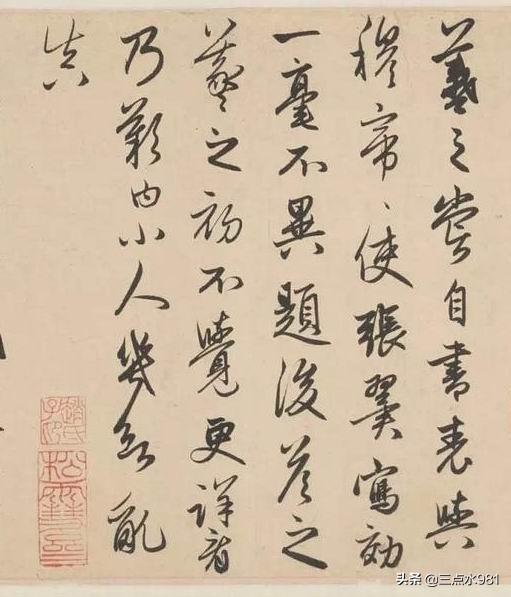 羲之嘗自書表與
穆帝〻使張翼寫効
一毫不異題後答之
羲之初不覺更詳看
乃歎曰小人幾欲亂
真
趙氏子昂
松雪齋
头条 @三点水981